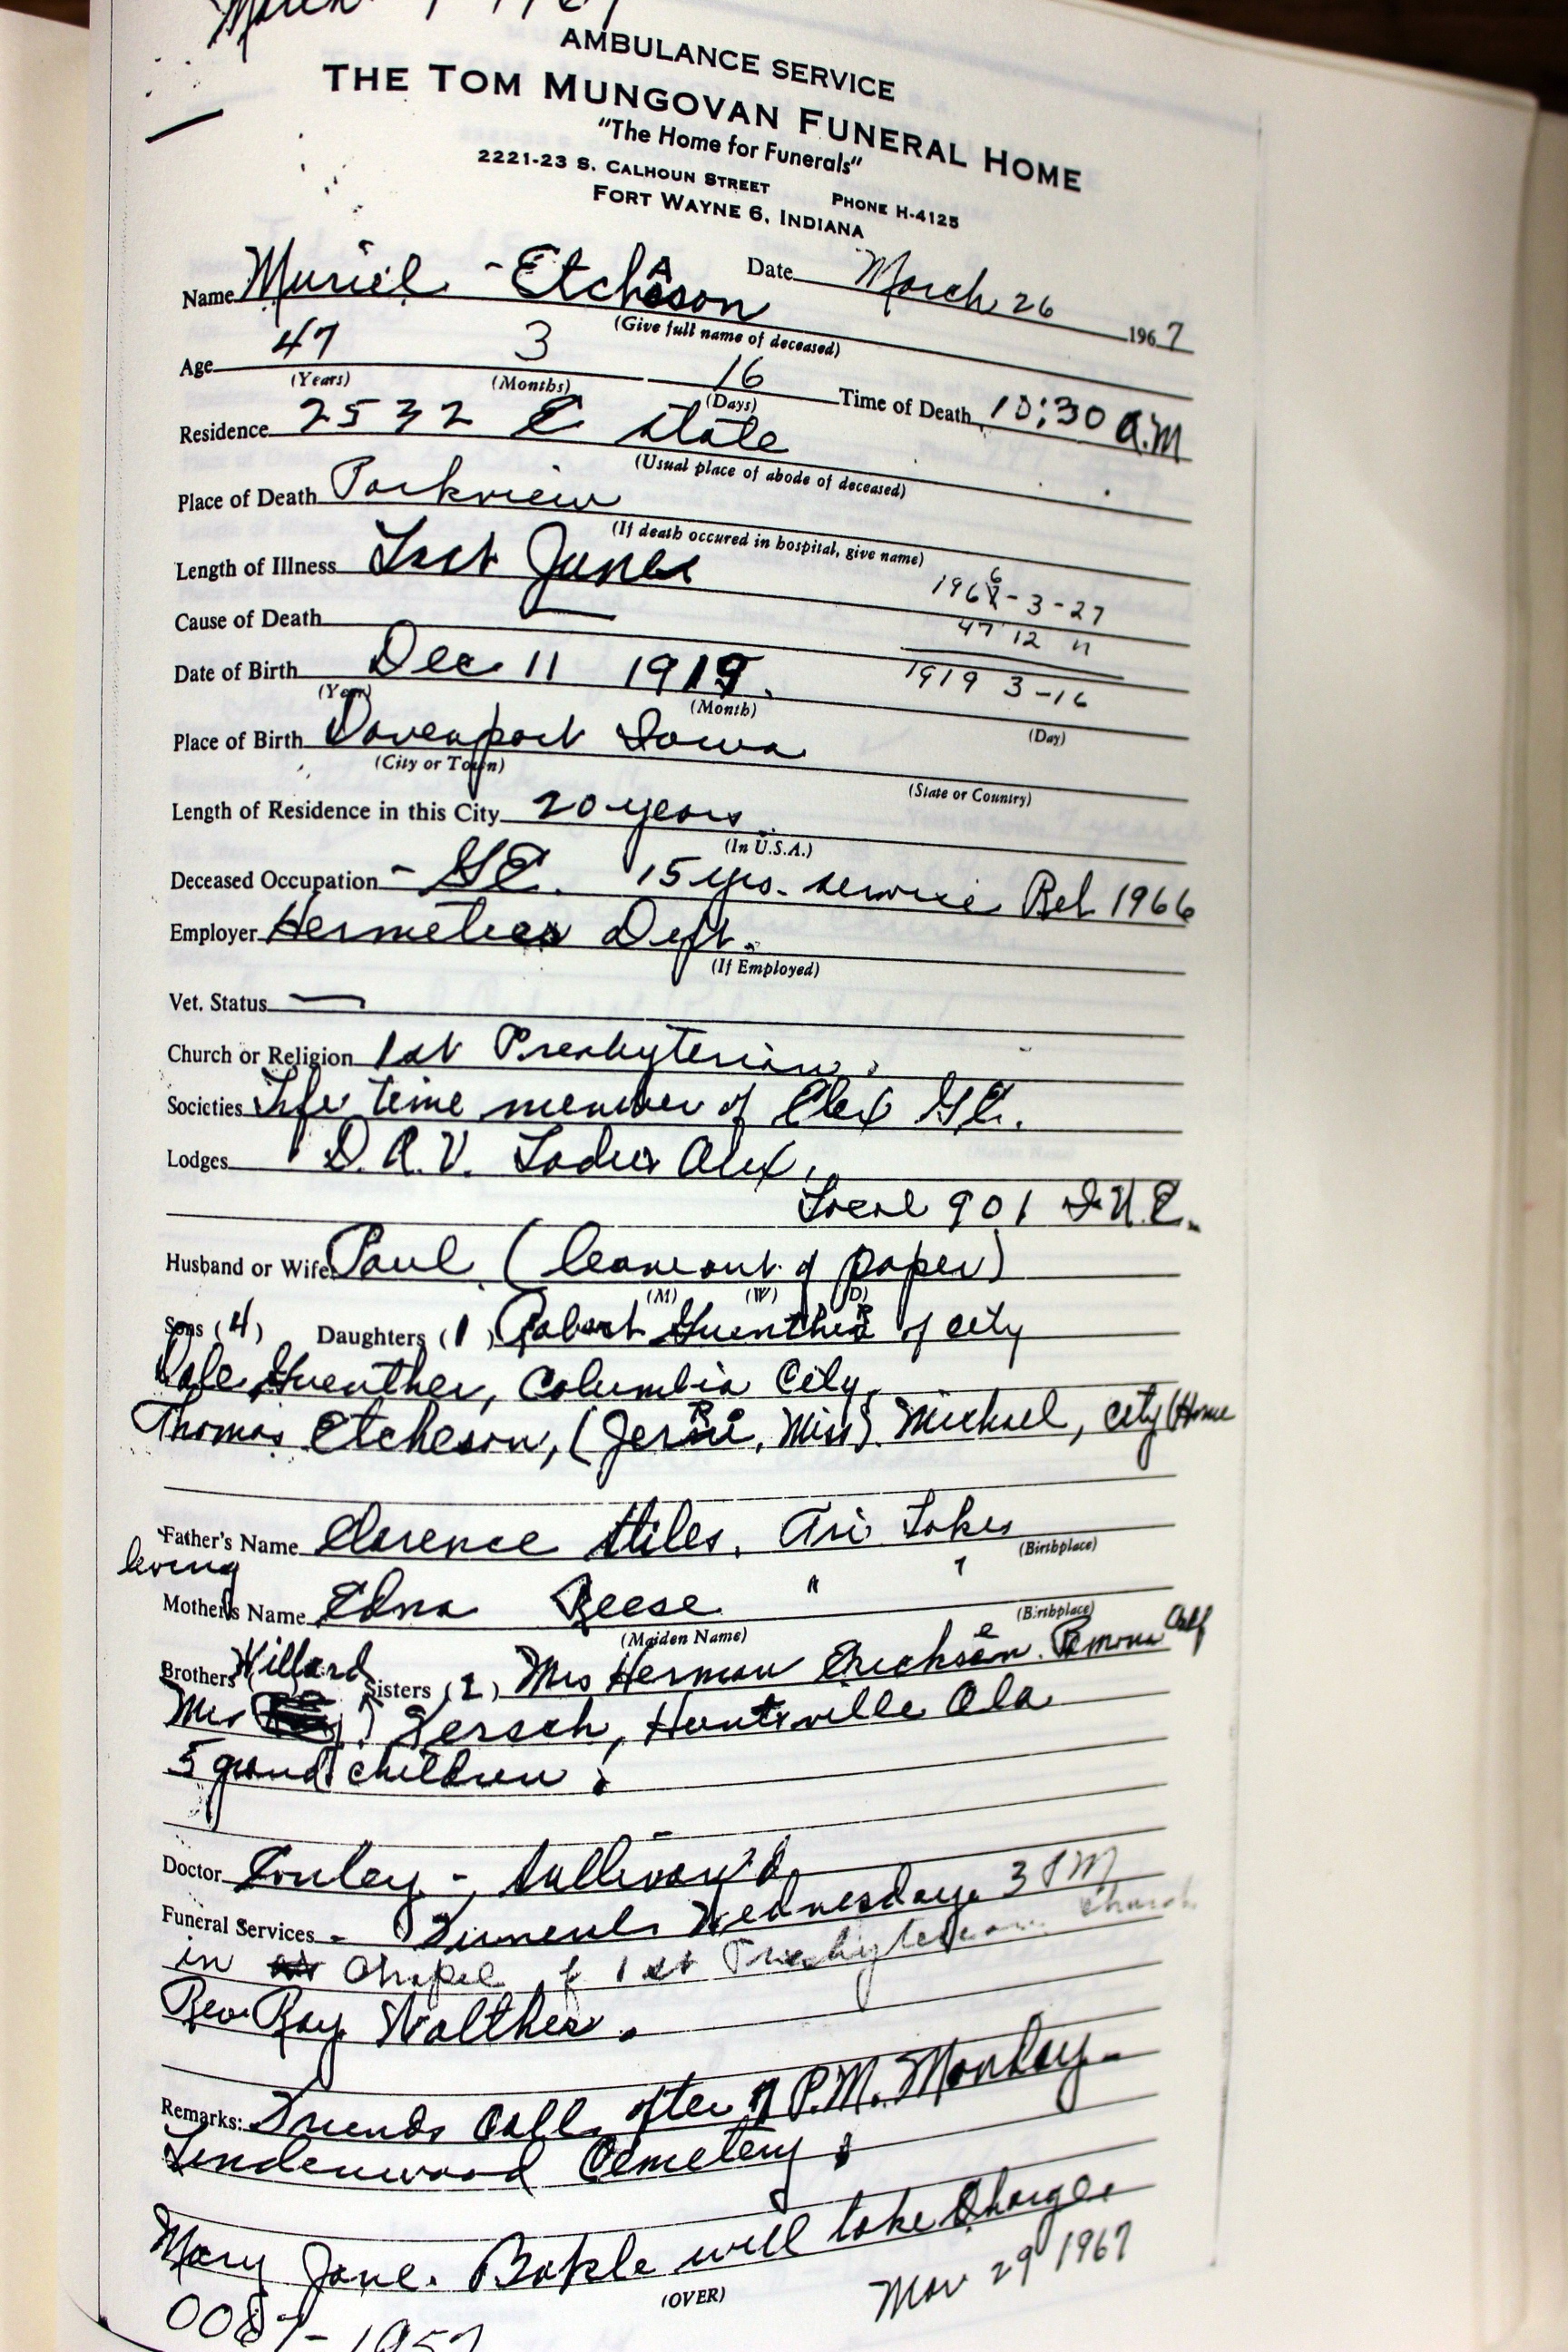 March
AMBULANCE SERVICE
THE TOM MUNGOVAN FUNERAL HOME
"The Home for Funerals"
2221-23 S. CALHOUN STREET PHONE H-4125
FORT WAYNE 6, INDIANA
Name Muriel - Etchason Date March 26 1967
(Give full name of deceased)
Age 47 3 16 Time of Death 10:30 A.M
(Years) (Months) (Days)
Residence 2532 E State
(Usual place of abode of deceased)
Place of Death Parkview
(If death occured in hospital, give name)
Length of Illness Last June
1966-3-27
Cause of Death —
47 12 11
Date of Birth Dec 11 1919.
1919 3-16
(Year) (Month) (Day)
Place of Birth Davenport Iowa
(City or Town) (State or Country)
Length of Residence in this City 20 years
(In U.S.A.)
Deceased Occupation - GE. 15 yrs. service Ret 1966
Employer Hermetics Dept.
(If Employed)
Vet. Status —
Church or Religion 1st Presbyterian.
Societies Life time member of Elex GE.
Lodges D.A.V. Ladies Aux,
Local 901 I.U.E.
Husband or Wife Paul (leave out of paper)
(M) (W) (D)
Sons (4) Daughters (1) Robert Guenther of city
Dale Guenther, Columbia City,
Thomas Etcheson, (Jerrie, Miss) Michael, city (Home
Father's Name Clarence Stiles, Ari Lakes
(Birthplace)
living
Mother's Name Edna Reese " "
(Maiden Name) (Birthplace)
Brothers Willard Sisters (2) Mrs Herman Ericksen Pomona Calf
Mrs Kersch, Huntsville Ala
5 grand children.
Doctor - Sullivan
Funeral Services - Funeral Wednesday 3 PM
in Chapel of 1st Presbyterian Church
Rev. Ray Walther.
Remarks: Friends Call after 7 P.M. Monday.
Lindenwood Cemetery.
Mary Jane. Bakle will take Charge.
(OVER)
Mar 29 1967